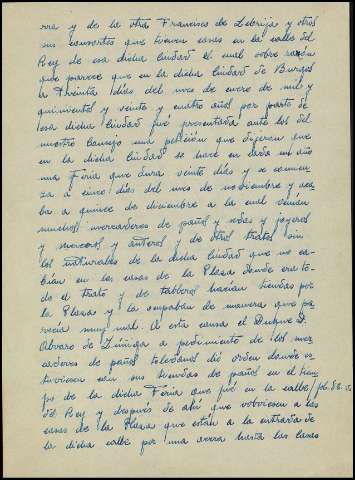 rra y de la otra Francisco de Lebrija y otros
sus consortes que tienen casas en la calle del
Rey de esa dicha Ciudad el cual sobre razón
que parece que en la dicha Ciudad de Burgos
a treinta días del mes de enero de mil y
quinientos y veinte y cuatro años por parte de
esa dicha Ciudad fué presentada ante los del
nuestro Consejo una petición que dijeron que
en la dicha Ciudad se hace en cada un año
una Feria que dura veinte días y se comien
za a cinco días del mes de noviembre y aca
ba a quince de diciembre a la cual venían
muchos mercaderes de paños y sedas y joyeros
y merceros y de otros tratos sin
los naturales de la dicha Ciudad que no ca-
bían en las casas de la Plaza donde era to-
do el trato y de tableros hacían tiendas por
la Plaza y la ocupaban de manera que pa-
recía muy mal. A esta causa el Duque D.
Alvaro de Zúñiga a pedimento de los mer
caderes de paños toledanos dió orden donde es-
tuviesen con sus tiendas de paños en el tiem
po de la dicha Feria que fué en la calle fol. 88.v.
del Rey y después de ahí que volviesen a las
casas de la Plaza que están a la entrada de
la dicha calle por una acera hasta las casas